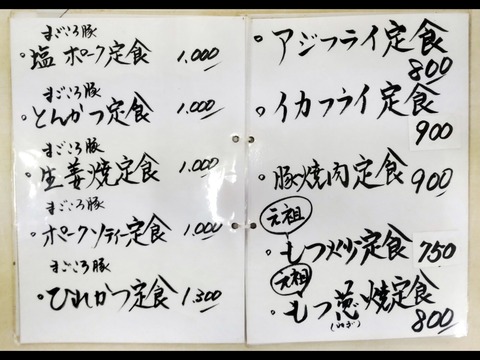 まごころ豚
・塩ポーク定食 1,000
まごころ豚
・とんかつ定食 1,000
まごころ豚
・生姜焼定食 1,000
まごころ豚
・ポークソティー定食 1,000
まごころ豚
・ひれかつ定食 1,300
・アジフライ定食
800
・イカフライ定食
900
・豚焼肉定食 900
元祖
・もつ炒定食 750
元祖
・もつ葱焼定食
(ねぎ)
800